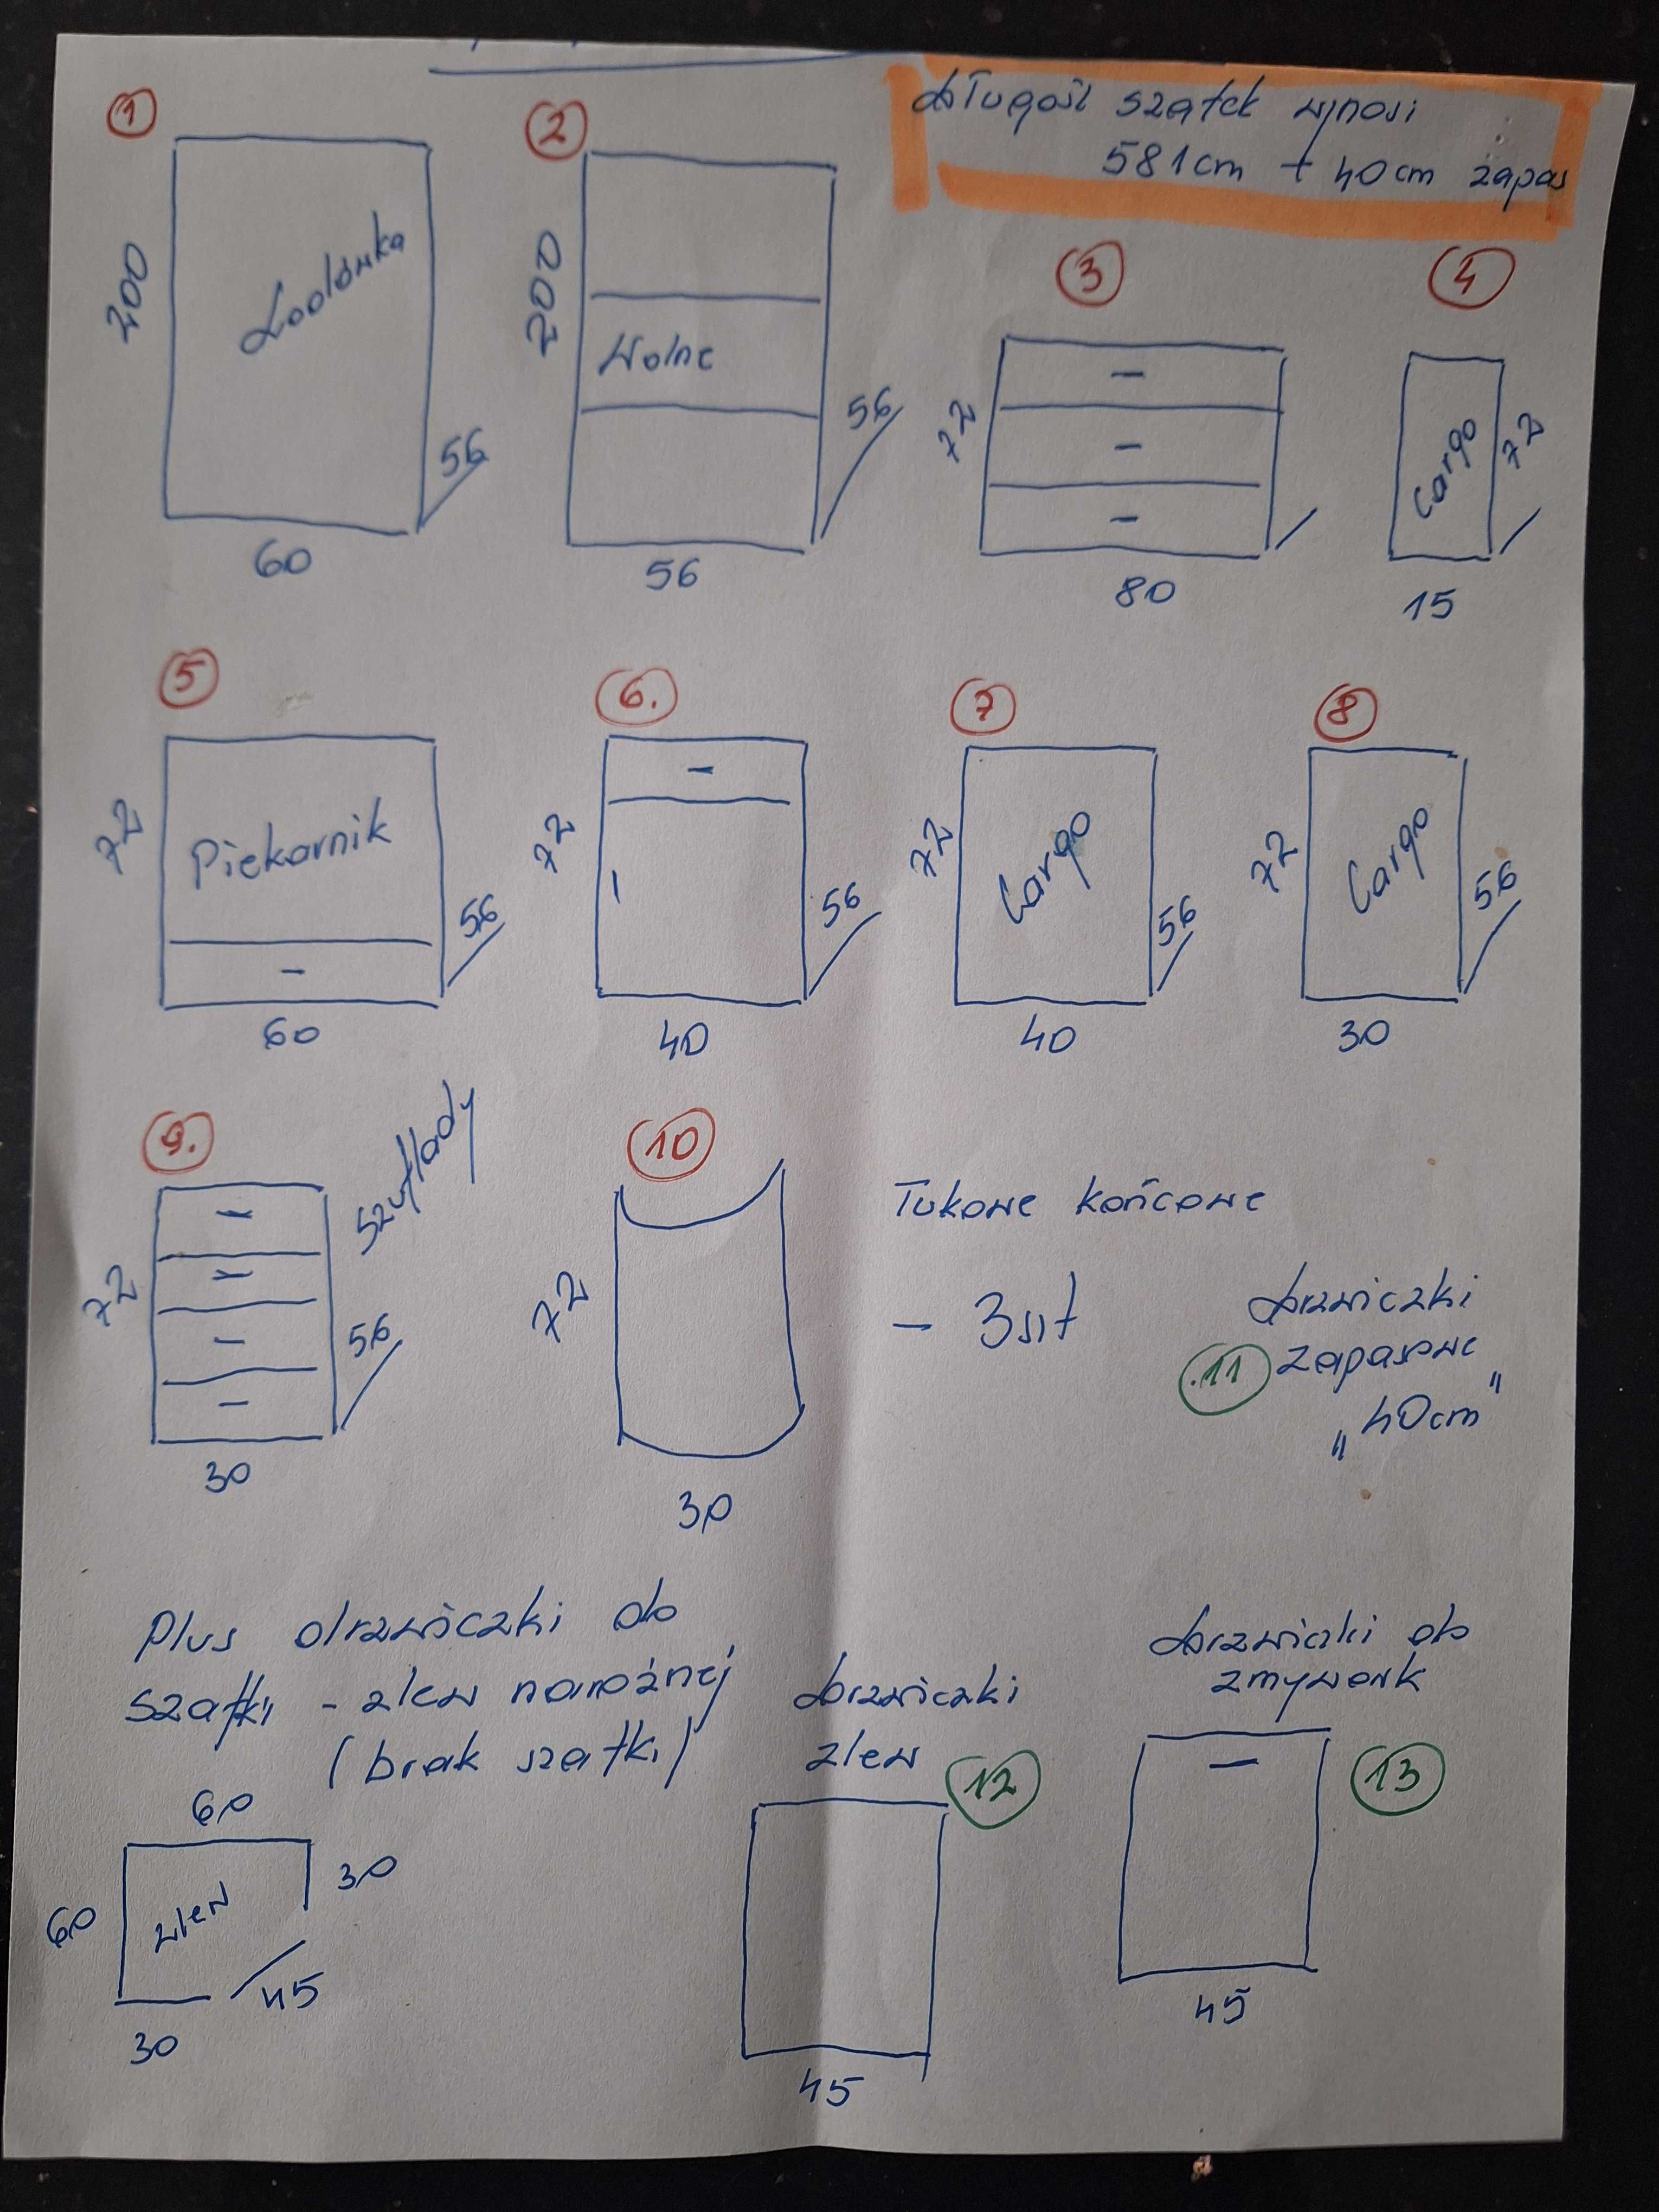 długość szafek wynosi
581cm + 40cm zapas
1
200
Lodówka
56
60
2
200
Wolne
56
56
3
72
80
4
Cargo
72
15
5
72
Piekarnik
56
60
6.
72
56
40
7
72
Cargo
56
40
8
72
Cargo
56
30
9.
Szuflady
72
56
30
10
72
30
Łukowe końcowe
- 3szt
11
drzwiczki
zapasowe
„40cm"
Plus drzwiczki do
szafki - zlew narożnej
(brak szafki)
60
60
zlew
30
45
30
drzwiczki
zlew
12
45
drzwiczki do
zmywark
13
45